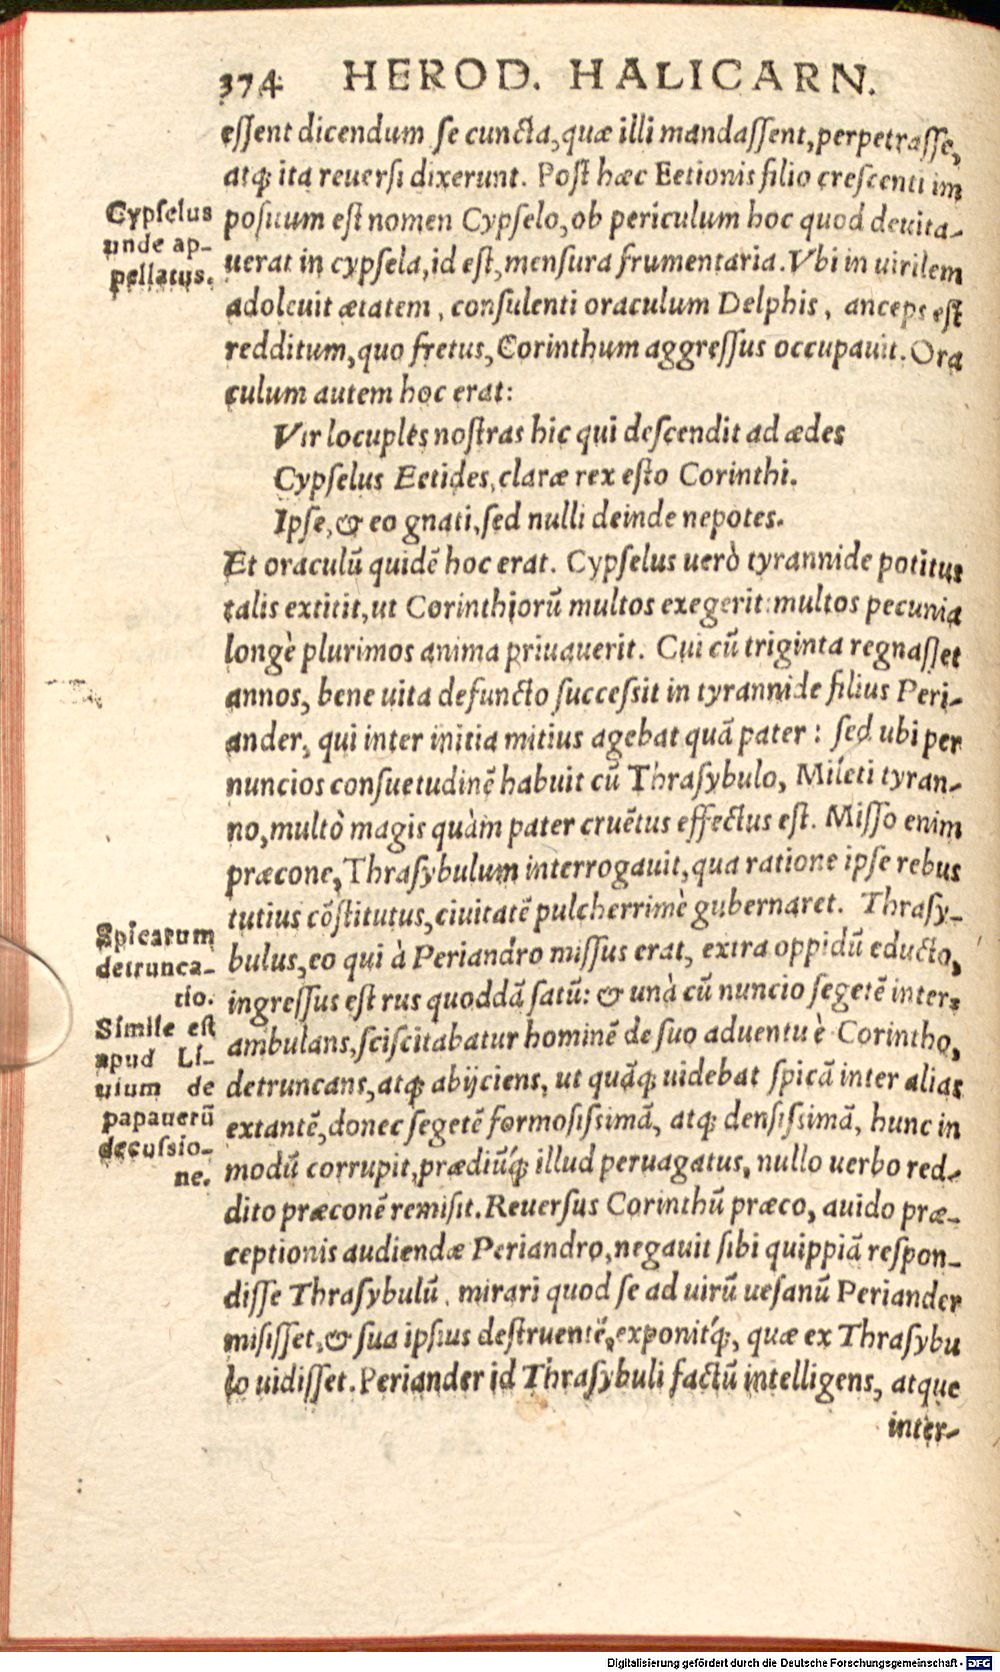 374 HEROD. HALICARN.
eſſent dicendum ſe cuncta, quæ illi mandaſſent, perpetraſſe,
atq; ita reuerſi dixerunt. Poſt hæc Eetionis filio creſcenti im
poſitum eſt nomen Cypſelo, ob periculum hoc quod deuita-
uerat in cypſela, id eſt, menſura frumentaria. Vbi in uirilem
adoleuit ætatem, conſulenti oraculum Delphis, anceps eſt
redditum, quo fretus, Corinthum aggreſſus occupauit. Ora
culum autem hoc erat:
Vir locuples noſtras hic qui deſcendit ad ædes
Cypſelus Eetides, claræ rex eſto Corinthi.
Ipſe, & eo gnati, ſed nulli deinde nepotes.
Et oraculũ quidẽ hoc erat. Cypſelus uerò tyrannide potitus
talis extitit, ut Corinthiorũ multos exegerit: multos pecunia
longè plurimos anima priuauerit. Cui cũ triginta regnaſſet
annos, bene uita defuncto ſucceſsit in tyrannide filius Peri-
ander, qui inter initia mitius agebat quã pater: ſed ubi per
nuncios conſuetudinẽ habuit cũ Thraſybulo, Mileti tyran-
no, multò magis quàm pater cruẽtus effectus eſt. Miſſo enim
præcone, Thraſybulum interrogauit, qua ratione ipſe rebus
tutius cõſtitutus, ciuitatẽ pulcherrimè gubernaret. Thraſy-
bulus, eo qui à Periandro miſſus erat, extra oppidũ educto,
ingreſſus eſt rus quoddã ſatũ: & unà cũ nuncio ſegetẽ inter-
ambulans, ſciſcitabatur hominẽ de ſuo aduentu è Corintho,
detruncans, atq; abijciens, ut quãq; uidebat ſpicã inter alias
extantẽ, donec ſegetẽ formoſiſsimã, atq; denſiſsimã, hunc in
modũ corrupit, prædiũq́; illud peruagatus, nullo uerbo red-
dito præconẽ remiſit. Reuerſus Corinthũ præco, auido præ-
ceptionis audiendæ Periandro, negauit ſibi quippiã reſpon-
diſſe Thraſybulũ, mirari quod ſe ad uirũ ueſanũ Periander
miſiſſet, & ſua ipſius deſtruentẽ, exponitq́;, quæ ex Thraſybu
lo uidiſſet. Periander id Thraſybuli factũ intelligens, atque
inter-
Cypſelus
unde ap-
pellatus.
Spicarum
detrunca-
tio.
Simile eſt
apud Li-
uium de
papauerũ
decuſsio-
ne.
Digitalisierung gefördert durch die Deutsche Forschungsgemeinschaft - DFG